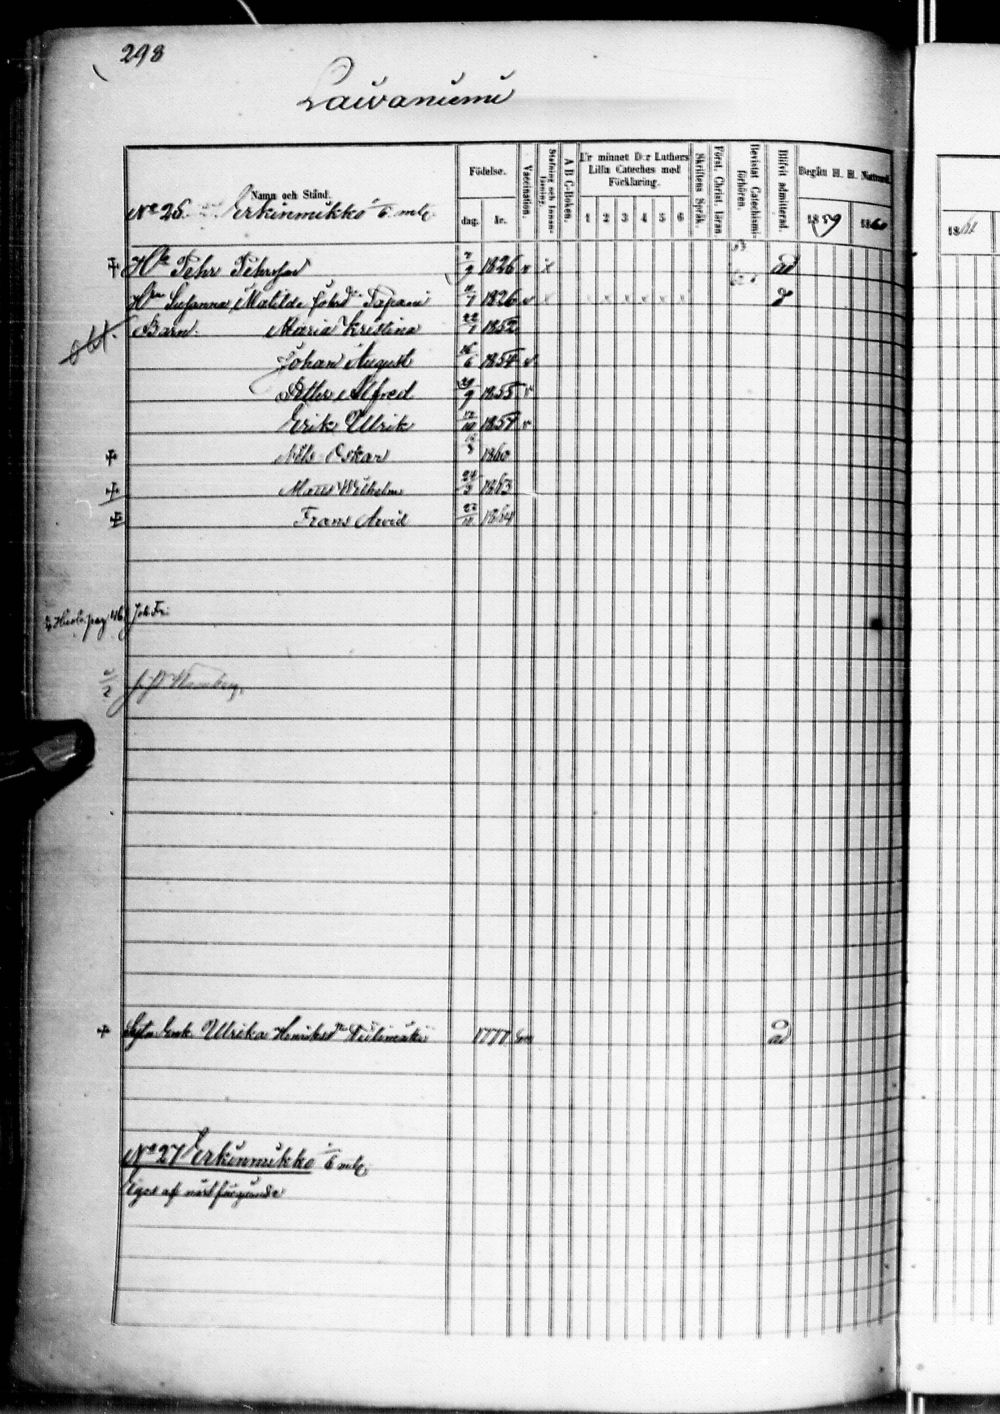 298
Laivaniemi
Namn och Stånd.
Födelse.
dag. år.
Vaccination.
Stafning och Innanläsning.
A B C-Boken.
Ur minnet D:r Luthers Lilla Cateches med Förklaring.
1 2 3 4 5 6
Skriftens Språk.
Först. Christ. läran.
Bevistat Catechismiförhören.
Blifvit admitterad.
Begått H. H. Nattvard.
1859 1860
186
No 26. Erkinmikko 1/6 mtl.
Petter Pehrsson 1826 v x ad
Susanna Matilda Johsdr Tapani 11/1 1826 v x x x x x x
Barn. Maria Kristina 22/1 1852
Johan August 16/6 1854 v
Petter Alfred 29/9 1855 v
Erik Ulrik 12/10 1857 v
Nils Oskar 1860
Mats Wilhelm 24/3 1863
Frans Arvid 1864
pag 46 Joh. Fr.
Enk. Ulrika Henriksdr 1777 ad
No 27 Erkinmikko 1/6 mtl.
Eges af näst föregående